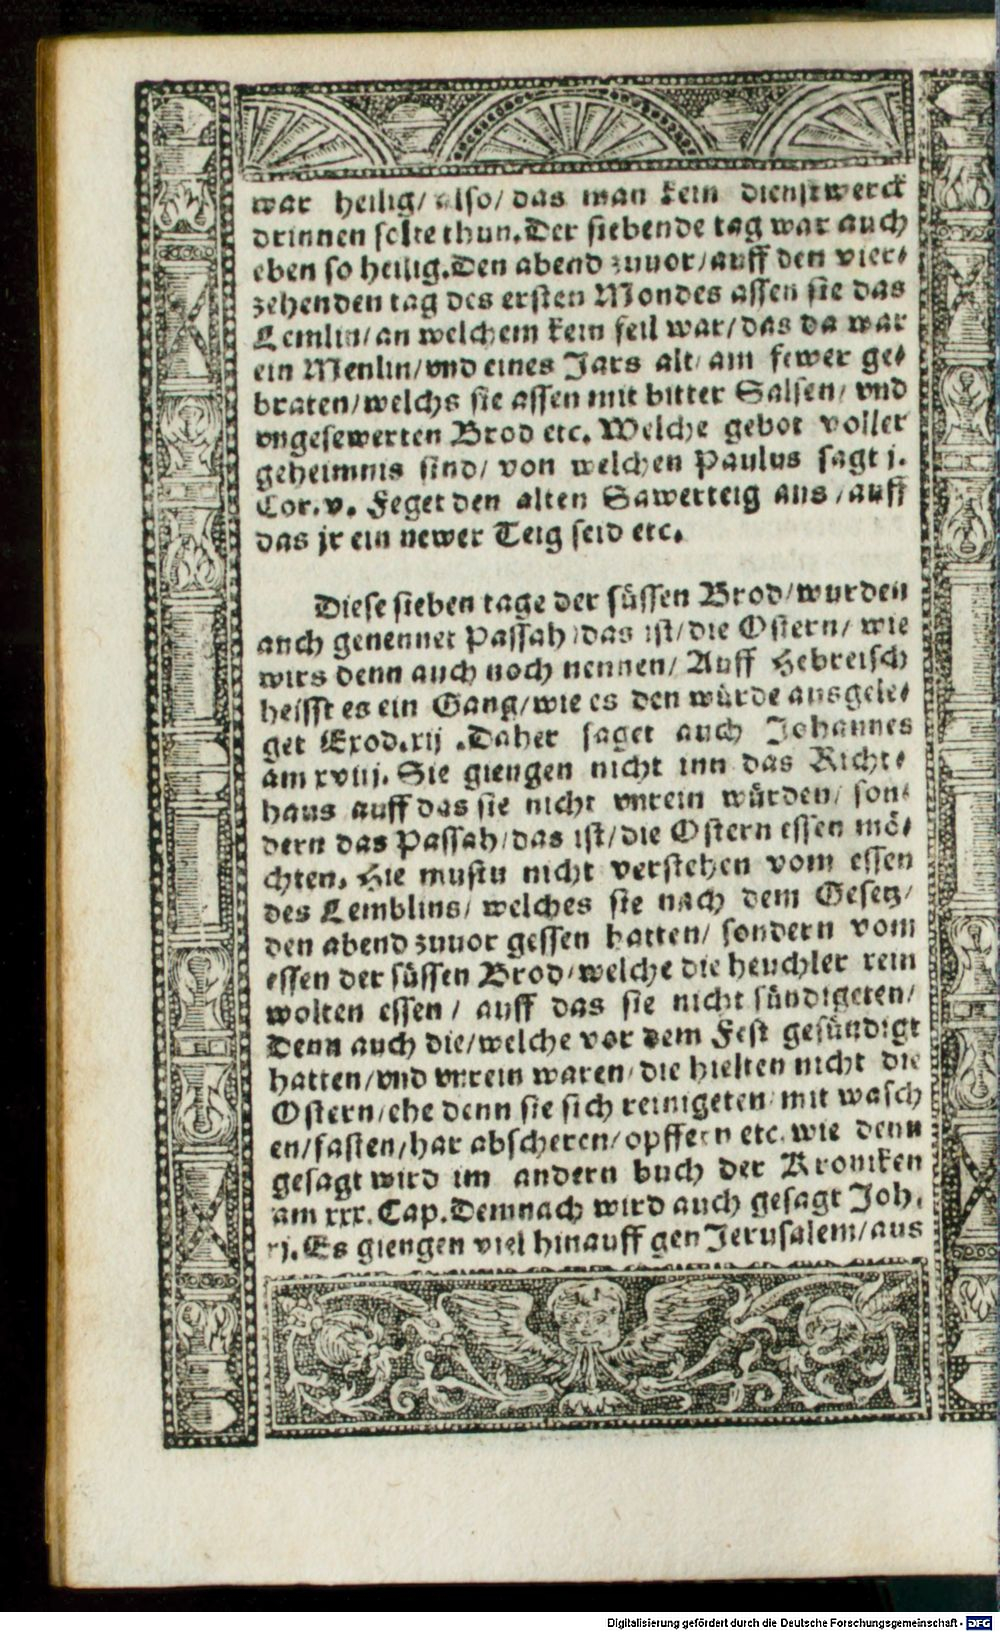 war heilig/ also/ das man kein dienstwerck
drinnen solte thun. Der siebende tag war auch
eben so heilig. Den abend zuuor/ auff den vier⸗
zehenden tag des ersten Mondes assen sie das
Lemlin/ an welchem kein feil war/ das da war
ein Menlin/ vnd eines Jars alt/ am fewer ge⸗
braten/ welchs sie assen mit bitter Salsen/ vnd
vngesewerten Brod etc. Welche gebot voller
geheimnis sind/ von welchen Paulus sagt j.
Cor. v. Feget den alten Sawerteig aus/ auff
das jr ein newer Teig seid etc.
Diese sieben tage der süssen Brod/ wurden
auch genennet Passah/ das ist/ die Ostern/ wie
wirs denn auch noch nennen/ Auff Hebreisch
heisst es ein Gang/ wie es den würde ausgele⸗
get Exod. xij. Daher saget auch Johannes
am xviij. Sie giengen nicht inn das Richt⸗
haus auff das sie nicht vnrein würden/ son⸗
dern das Passah/ das ist/ die Ostern essen mö⸗
chten. Hie mustu nicht verstehen vom essen
des Lemblins/ welches sie nach dem Gesetz/
den abend zuuor gessen hatten/ sondern vom
essen der süssen Brod/ welche die heuchler rein
wolten essen/ auff das sie nicht sündigeten/
Denn auch die/ welche vor dem Fest gesündigt
hatten/ vnd vnrein waren/ die hielten nicht die
Ostern/ ehe denn sie sich reinigeten/ mit wasch
en/ fasten/ har abscheren/ opffern etc. wie denn
gesagt wird im andern buch der Kroniken
am xxx. Cap. Demnach wird auch gesagt Joh.
xj. Es giengen viel hinauff gen Jerusalem/ aus
Digitalisierung gefördert durch die Deutsche Forschungsgemeinschaft - DFG